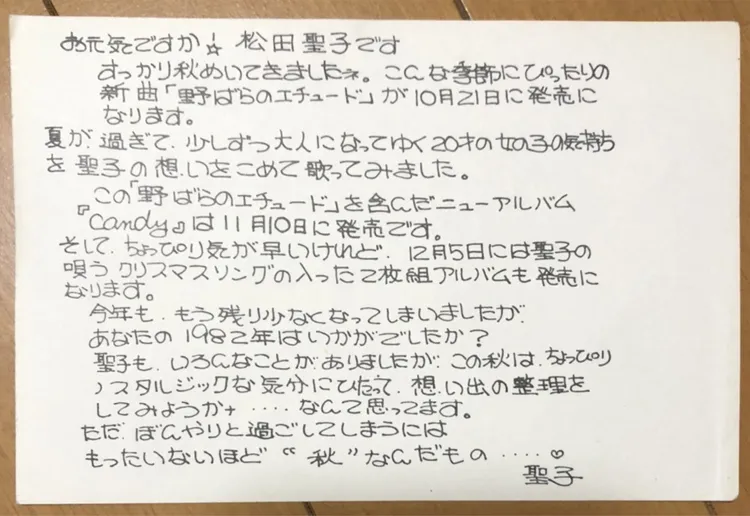 お元気ですか!☆ 松田聖子です
すっかり秋めいてきましたネ。こんな季節にぴったりの
新曲「野ばらのエチュード」が10月21日に発売に
なります。
夏が、過ぎて、少しずつ大人になってゆく20才の女の子の気持ち
を聖子の想いをこめて歌ってみました。
この「野ばらのエチュード」を含んだニューアルバム
『Candy』は11月10日に発売です。
そして、ちょっぴり気が早いけれど、12月5日には聖子の
唄うクリスマスソングの入った2枚組アルバムも発売に
なります。
今年も、もう残り少なくなってしまいましたが、
あなたの1982年はいかがでしたか?
聖子も、いろんなことがありましたが、この秋は、ちょっぴり
ノスタルジックな気分にひたって、想い出の整理を
してみようかナ ‥‥なんて思ってます。
ただ、ぼんやりと過ごしてしまうには
もったいないほど“秋”なんだもの ‥‥♡
聖子